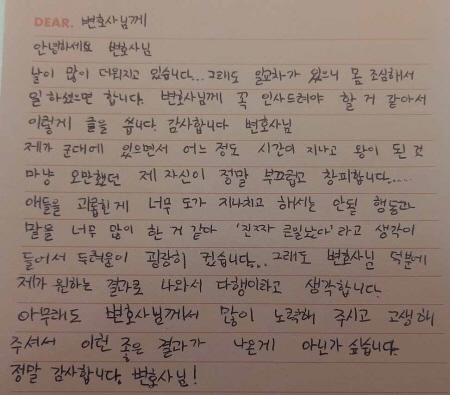 DEAR. 변호사님께
안녕하세요 변호사님
날이 많이 더워지고 있습니다... 그래도 일교차가 있으니 몸 조심해서
일 하셨으면 합니다. 변호사님께 꼭 인사드려야 할 거 같아서
이렇게 글을 씁니다. 감사합니다 변호사님
제가 군대에 있으면서 어느 정도 시간이 지나고 왕이 된 것
마냥 오만했던 제 자신이 정말 부끄럽고 창피합니다.....
애들을 괴롭힌게 너무 도가 지나치고 해서는 안될 행동과
말을 너무 많이 한 거 같다 '진짜 큰일났다' 라고 생각이
들어서 두려움이 굉장히 컸습니다.. 그래도 변호사님 덕분에
제가 원하는 결과로 나와서 다행이라고 생각합니다.
아무래도 변호사님께서 많이 노력해 주시고 고생해
주셔서 이런 좋은 결과가 나온게 아닌가 싶습니다.
정말 감사합니다, 변호사님!